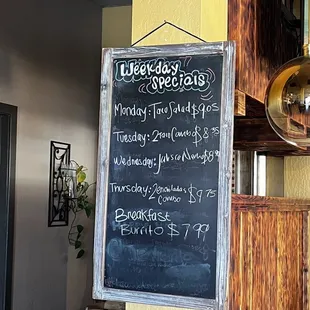 Weekday
Specials
Monday: Taco Salad $9.05
Tuesday: 2 Taco Combo $8.95
Wednesday: Jalisco Nachos $8.95
Thursday: 2 Enchiladas $9.75
Combo
Breakfast
Burrito $7.99